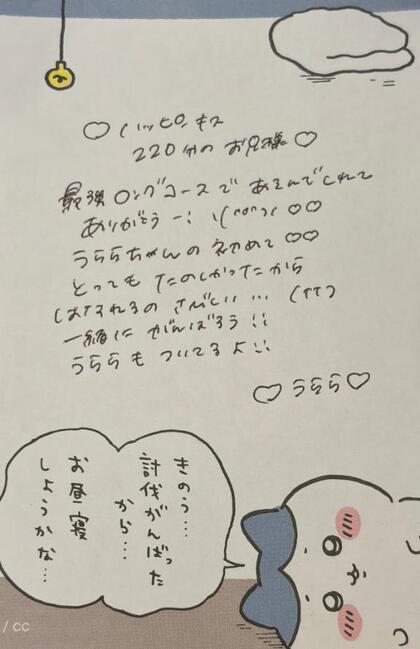 ♡ ハッピーキス
220分の お兄様♡
最強 ロングコースで あそんでくれて
ありがとう ー! \(^o^)/ ♡♡
うららちゃんの 初めて ♡♡
とっても たのしかったから
はなれるの さびしい… (TT)
一緒に がんばろう!!
うららも ついてるよ!!
♡ うらら♡
きのう…
討伐がんばった
から…
お昼寝
しようかな…
/ CC